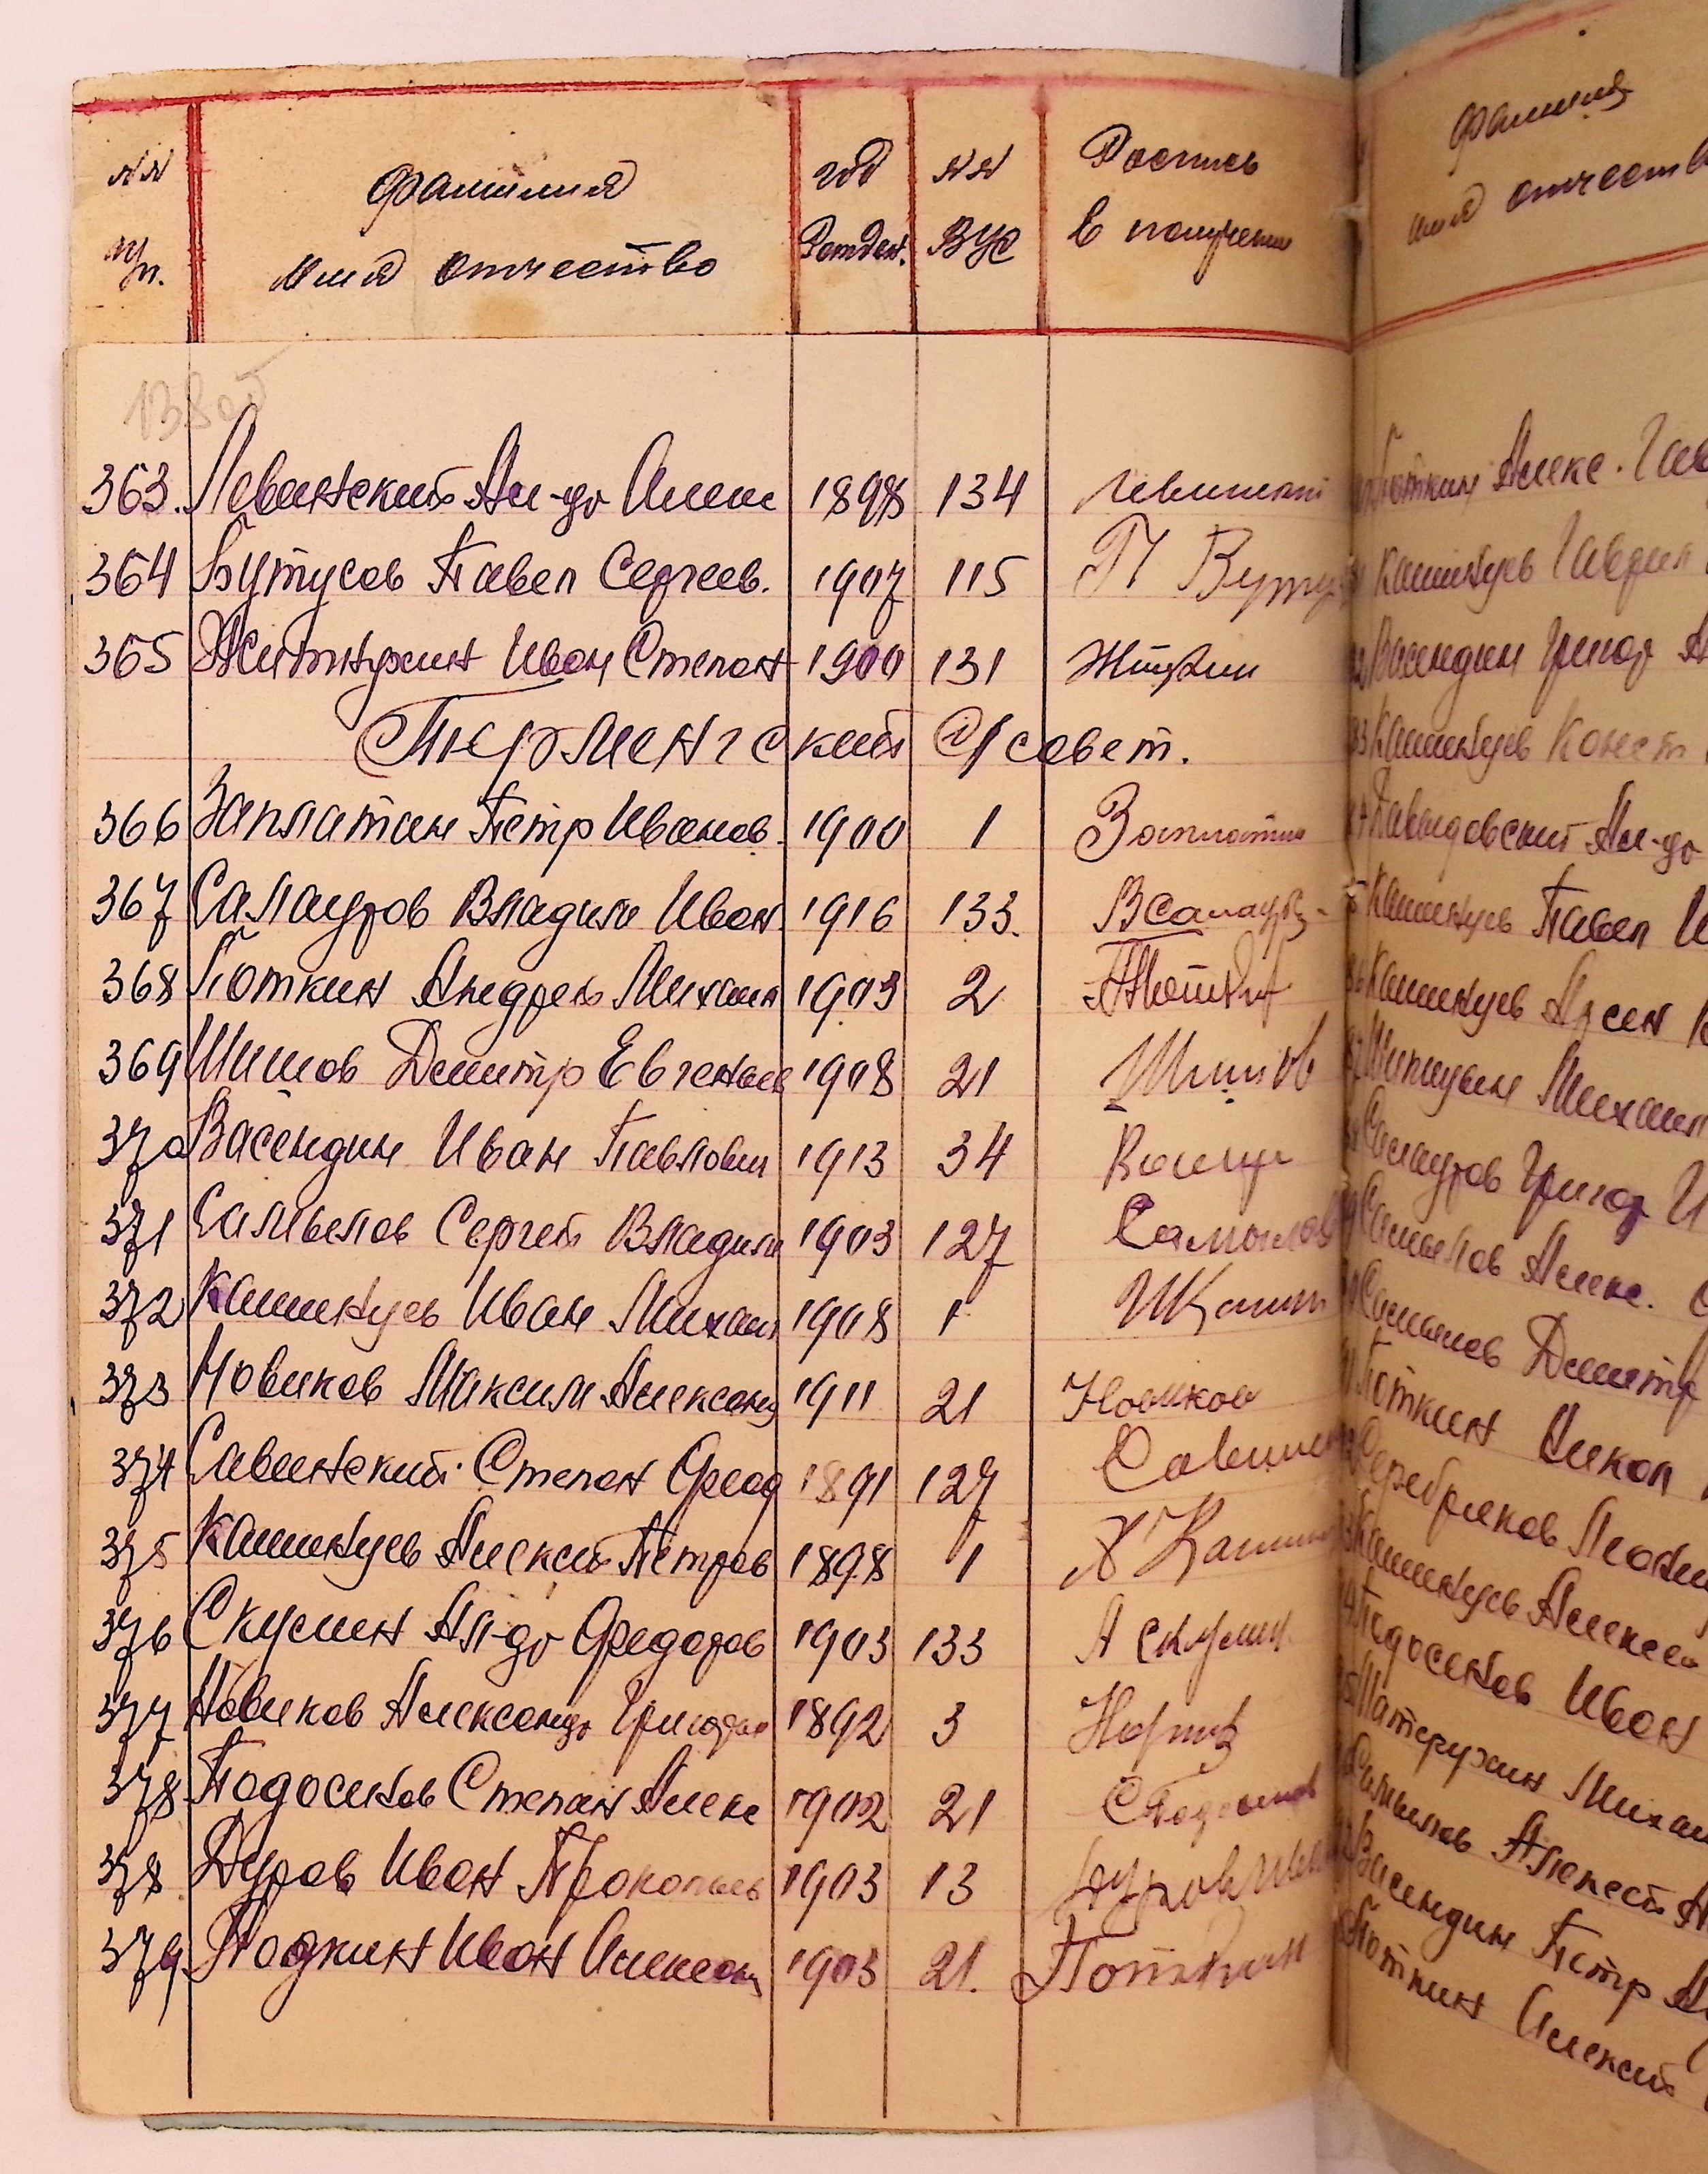 №№ Фамилия год №№ Роспись
п/п. имя отчество Рожден. ВУС в получении
138об
363. Левинский Ал-др Алекс 1898 134
364 Бутусов Павел Сергеев. 1907 115 П Буту
365 Житнухин Иван Степан 1900 131
Тюрменский С/совет.
366 Заплатин Петр Иванов. 1900 1 Заплатин
367 Салауров Владим Иван. 1916 133. В Салаур
368 Поткин Андрей Михаил 1903 2
369 Шишов Дмитр Евгеньев 1908 21 Шишов
370 Васендин Иван Павлович 1913 34
371 Самылов Сергей Владим 1903 127 Самылов
372 Кашинцев Иван Михаил 1908 1
373 Новиков Максим Александ 1911 21 Новиков
374 Савинский Степан Федо 1891 127 Савин
375 Кашинцев Алексей Петров 1898 1
376 Скусин Ал-др Федоров 1903 133 А Скусин
377 Новиков Александр Григор 1892 3
378 Подосенов Степан Алекс 1902 21
378 Дуров Иван Прокопьев 1903 13 Дуров Ив
379 Подкин Иван Александ 1903 21. Поткин
Фамилия
имя отчеств
Поткин Алекс.
Кашинцев Гаврил
Васендин Григор
Кашинцев Конст
Давыдовский Ал-др
Кашинцев Павел И
Кашинцев Арсен
Михаил
Салауров Григор И
Самылов Алекс.
Самылов Дмитр
Поткин Никол
Серебряков Леони
Кашинцев Алексей
Подосенов Иван
Матерухин Михаи
Самылов Алексей
Васендин Петр
Поткин Алексей